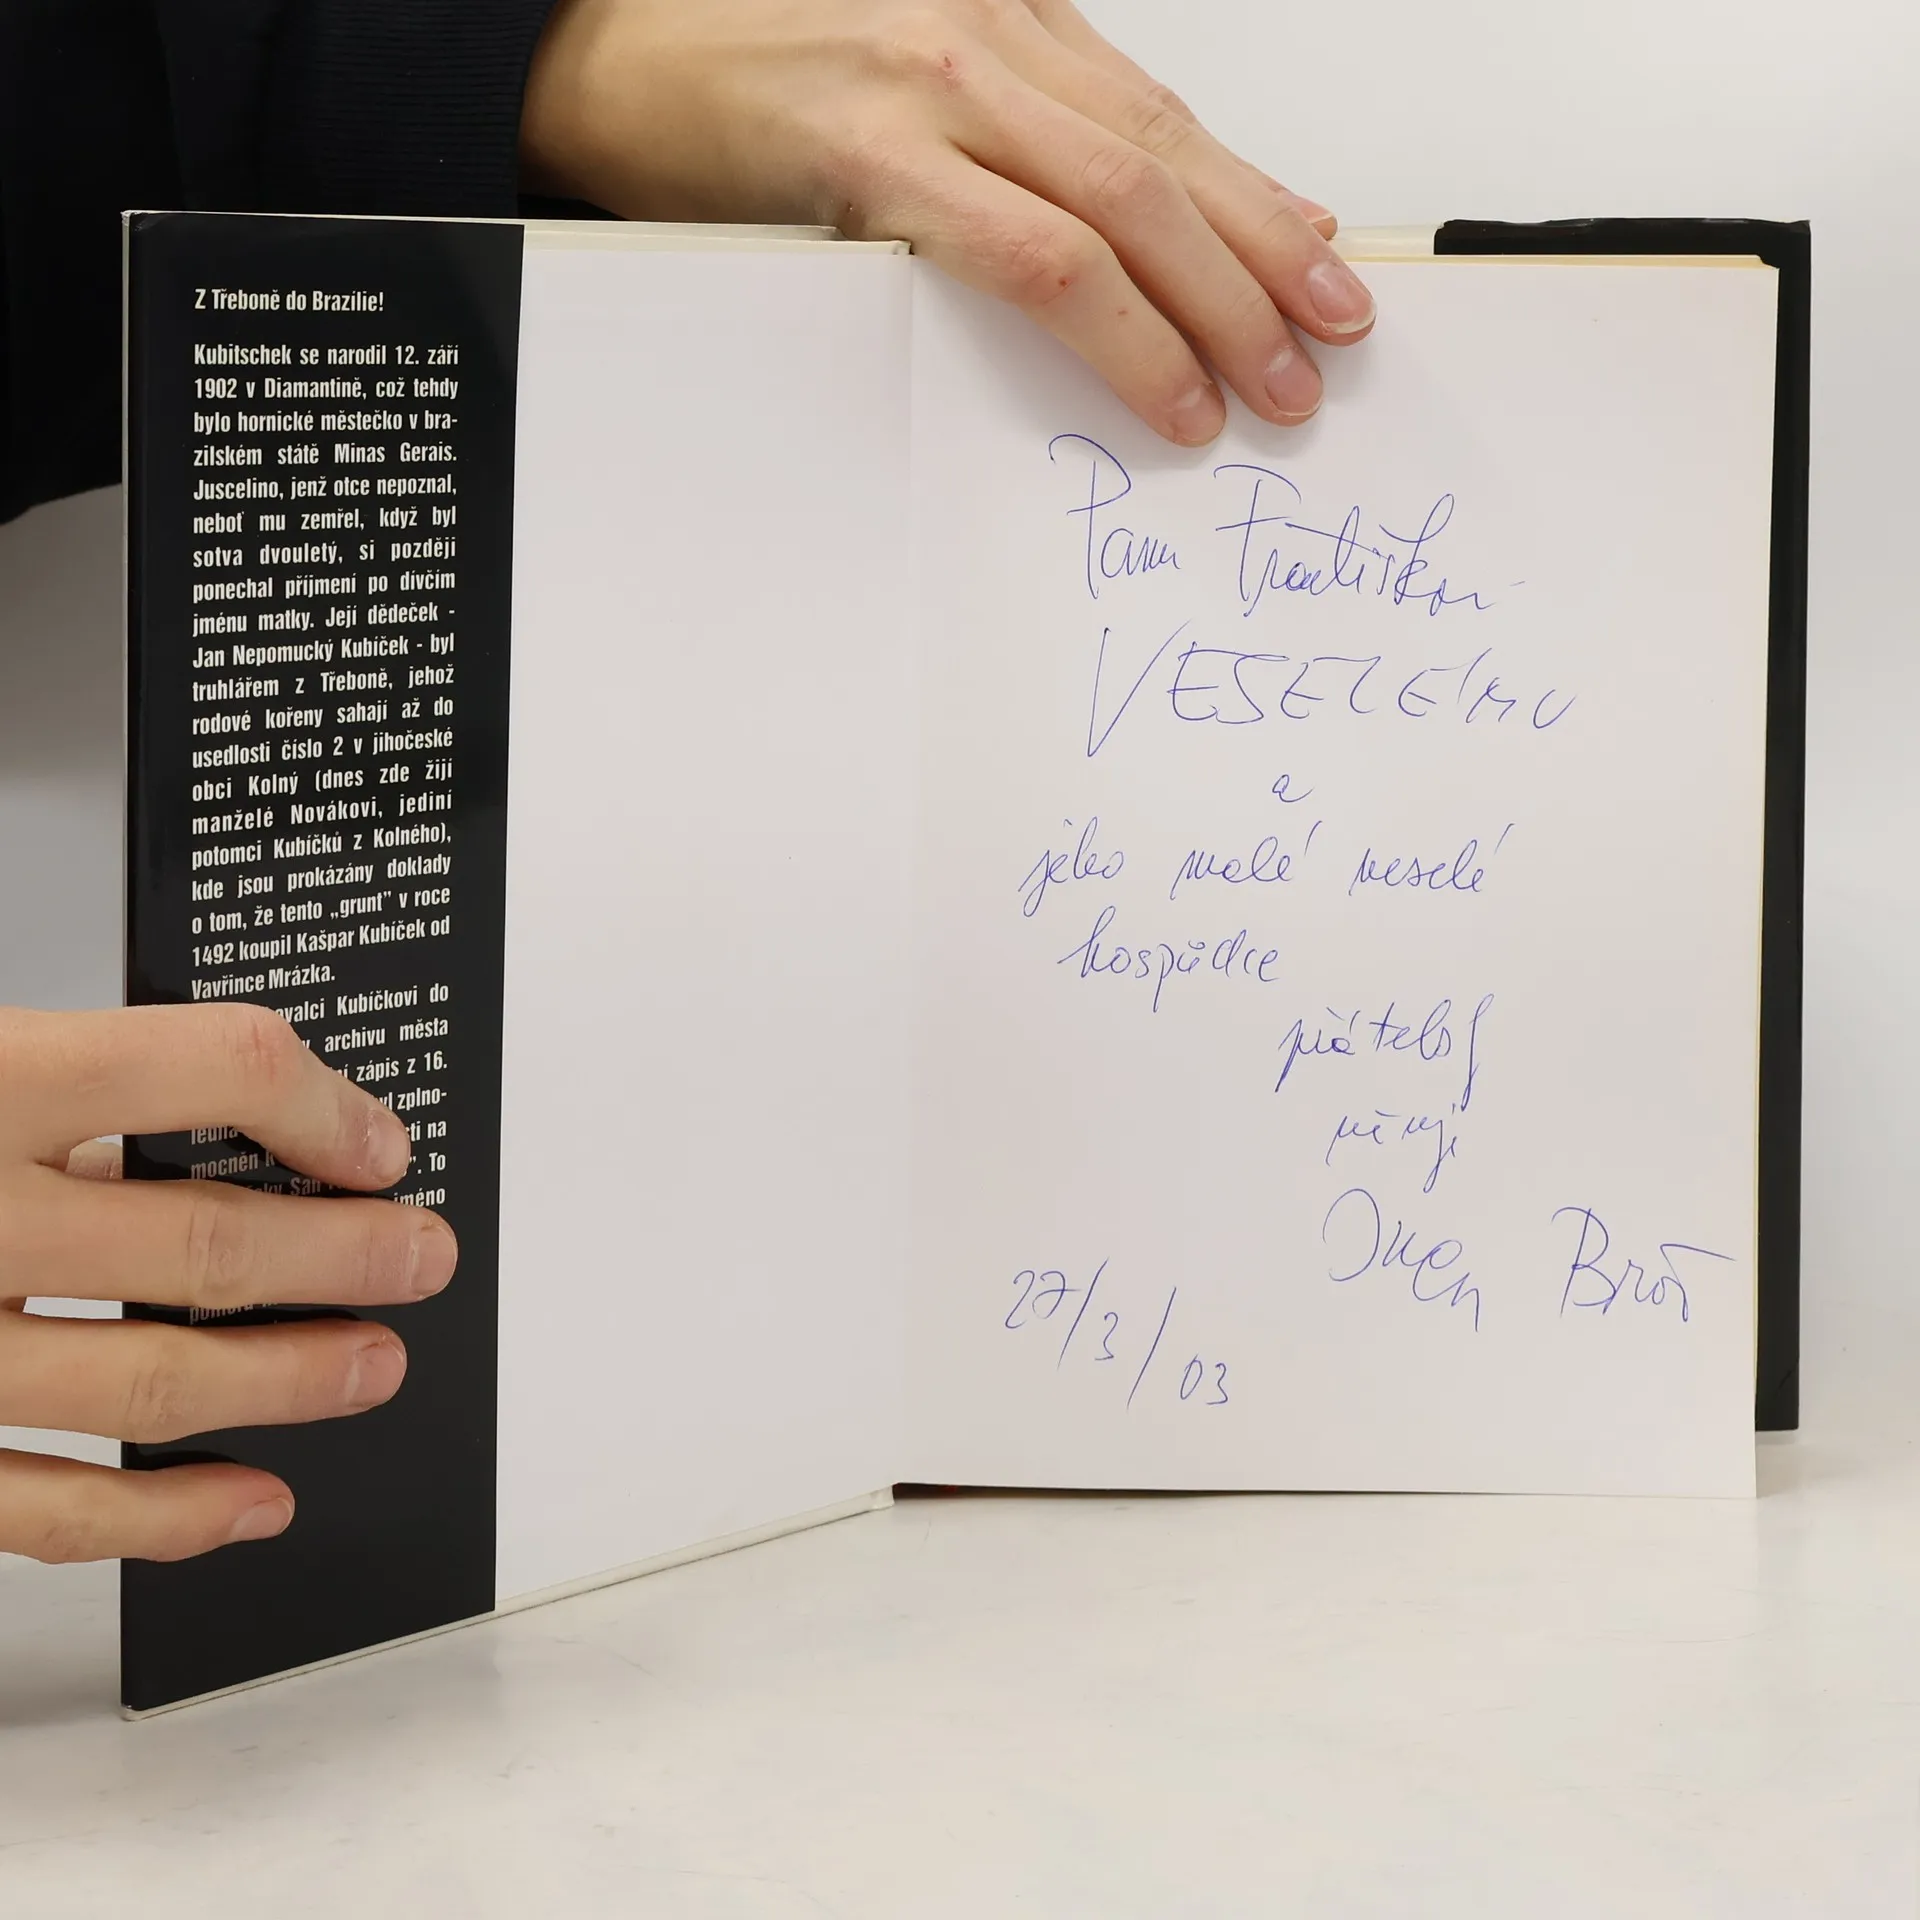 Z Třeboně do Brazílie!
Kubitschek se narodil 12. září
1902 v Diamantině, což tehdy
bylo hornické městečko v bra-
zilském státě Minas Gerais.
Juscelino, jenž otce nepoznal,
neboť mu zemřel, když byl
sotva dvouletý, si později
ponechal příjmení po dívčím
jménu matky. Její dědeček -
Jan Nepomucký Kubíček - byl
truhlářem z Třeboně, jehož
rodové kořeny sahají až do
usedlosti číslo 2 v jihočeské
obci Kolný (dnes zde žijí
manželé Novákovi, jediní
potomci Kubíčků z Kolného),
kde jsou prokázány doklady
o tom, že tento „grunt” v roce
1492 koupil Kašpar Kubíček od
Vavřince Mrázka.
Kubíčkovi do
archivu města
zápis z 16.
zplno-
na
mocněn
”. To
San
jméno
Panu Františkovi
VESELÉMU
a
jeho malé veselé
hospůdce
přátelsky
věnuje
Ivan Brož
27/3/03